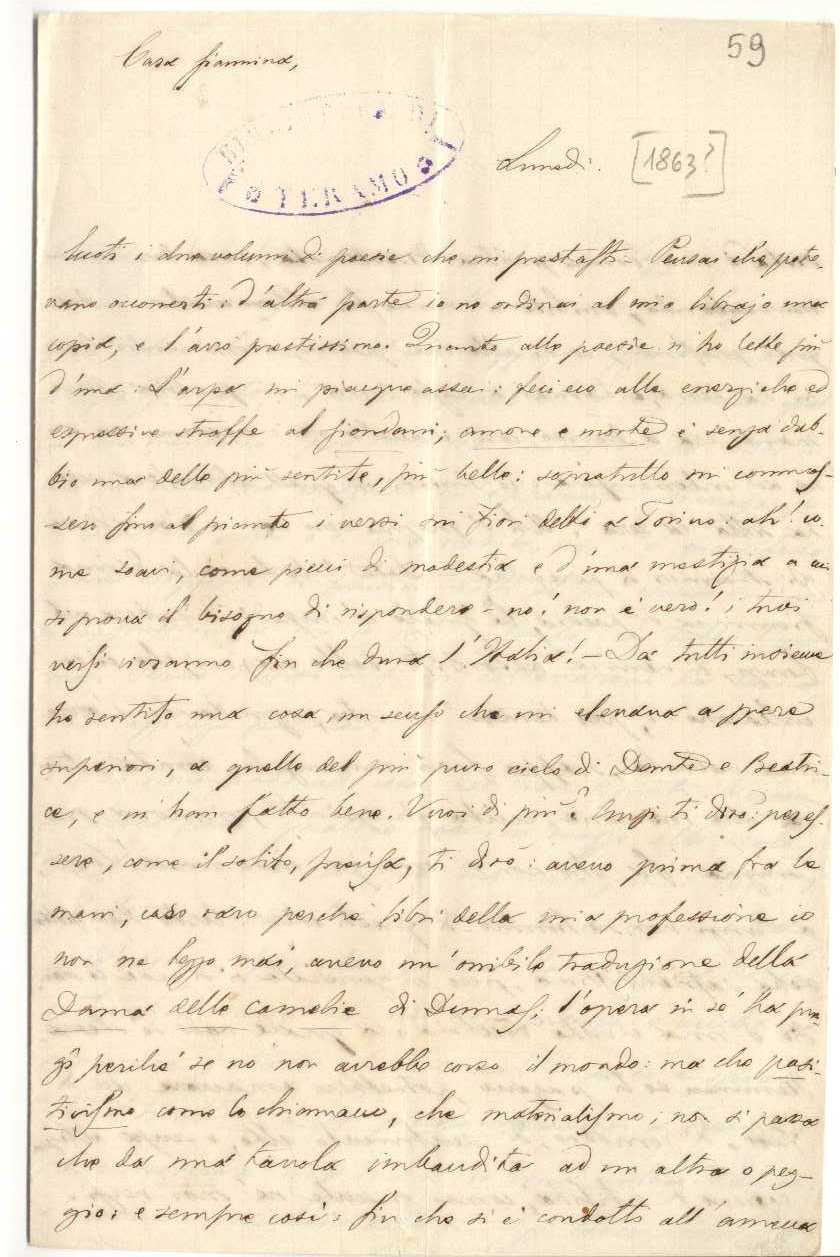 59
Cara Giannina,
TERAMO
Lunedì. [1863?]
i due volumi di poesie che mi prestasti - Pensai che pote-
vano occorrerti: d'altra parte io ne ordinai al mio librajo una
copia, e l'avrò prestissimo. Quanto alle poesie n'ho lette più
d'una: L'arpa mi piacque assai: feci eco alle energiche ed
espressive stroffe al Giordani; amore e morte è senza dub-
bio una delle più sentite, più belle: sopratutto mi commos-
sero fino al pianto i versi sui fiori detti a Torino: ah! co-
me soavi, come pieni di modestia e d'una mestizia a cui
si prova il bisogno di rispondere - no! non è vero! i tuoi
versi vivranno fin che dura l'Italia! - Da tutti insieme
ho sentito una cosa, un senso che mi elevava a spere
superiori, a quelle del più puro cielo di Dante e Beatri-
ce, e m'han fatto bene. Vuoi di più? Anzi ti dirò: per es-
sere, come il solito, precisa, ti dirò: avevo prima fra le
mani, caso raro perché libri della mia professione io
non ne leggo mai, avevo un'orribile traduzione della
Dama delle camelie di Dumas; l'opera in sé ha pre-
gi perché se no non avrebbe corso il mondo: ma che posi-
tivismo come lo chiamano, che materialismo; non si passa
che da una tavola imbandita ad un altra o peg-
gio: e sempre così: fin che si è condotto all'